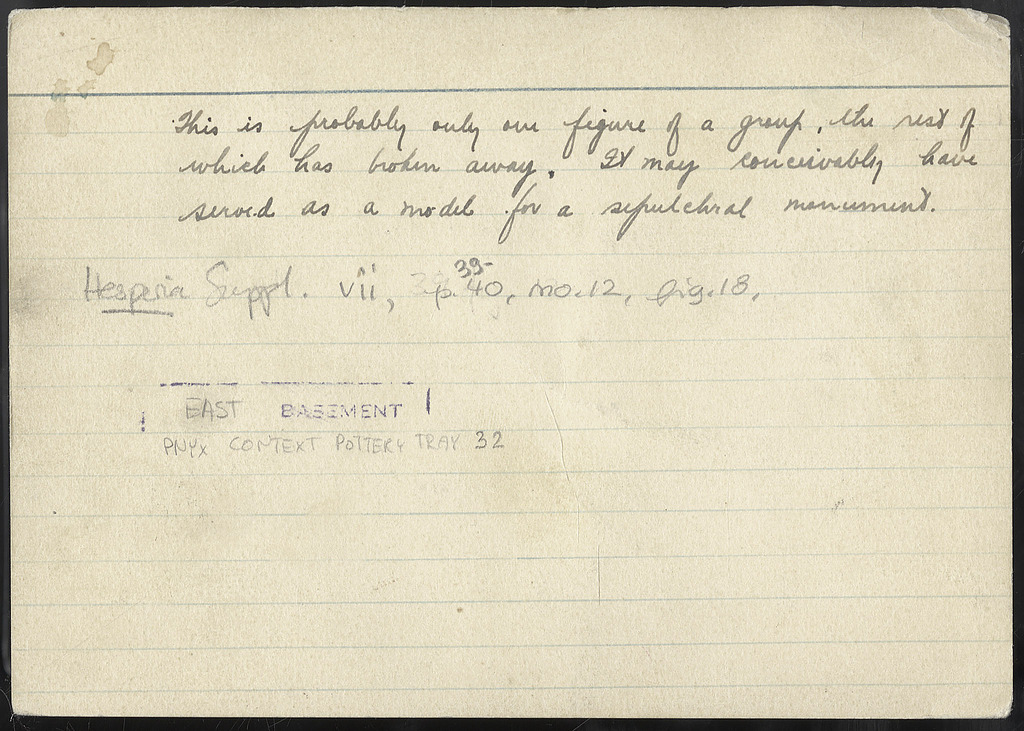 This is probably only one figure of a group, the rest of
which has broken away. It may conceivably have
served as a model for a sepulchral monument.
Hesperia Suppl. vii, p. 39-40, no. 12, fig. 18.
EAST BASEMENT
PNYX CONTEXT POTTERY TRAY 32